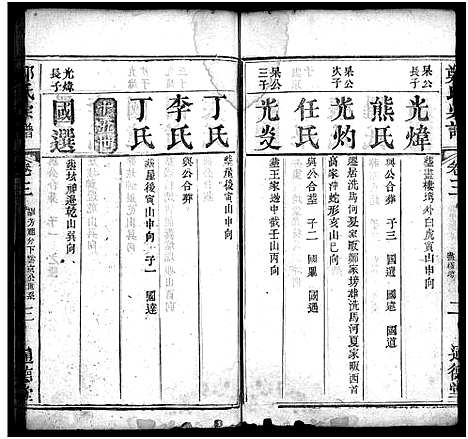 鄭氏宗譜
卷三
二
通德堂
杲公長子
光煒
葬畫樓塆外白虎寅山申向
熊氏
與公合葬 子三 國選 國進 國道
杲公次子
光灼
遷居洗馬河夏家畈鄭家塝葬洗馬河夏家畈西首
高家葬蛇形亥山巳向
任氏
與公合葬 子二 國暹 國遇
杲公三子
光炎
葬王家邊中截壬山丙向
丁氏
葬屋後寅山申向
李氏
與公合葬
丁氏
葬屋後寅山申向 子一 國達
光煒長子
國選
葬坟神邊乾山巽向
鄭氏宗譜
卷三
三
通德堂